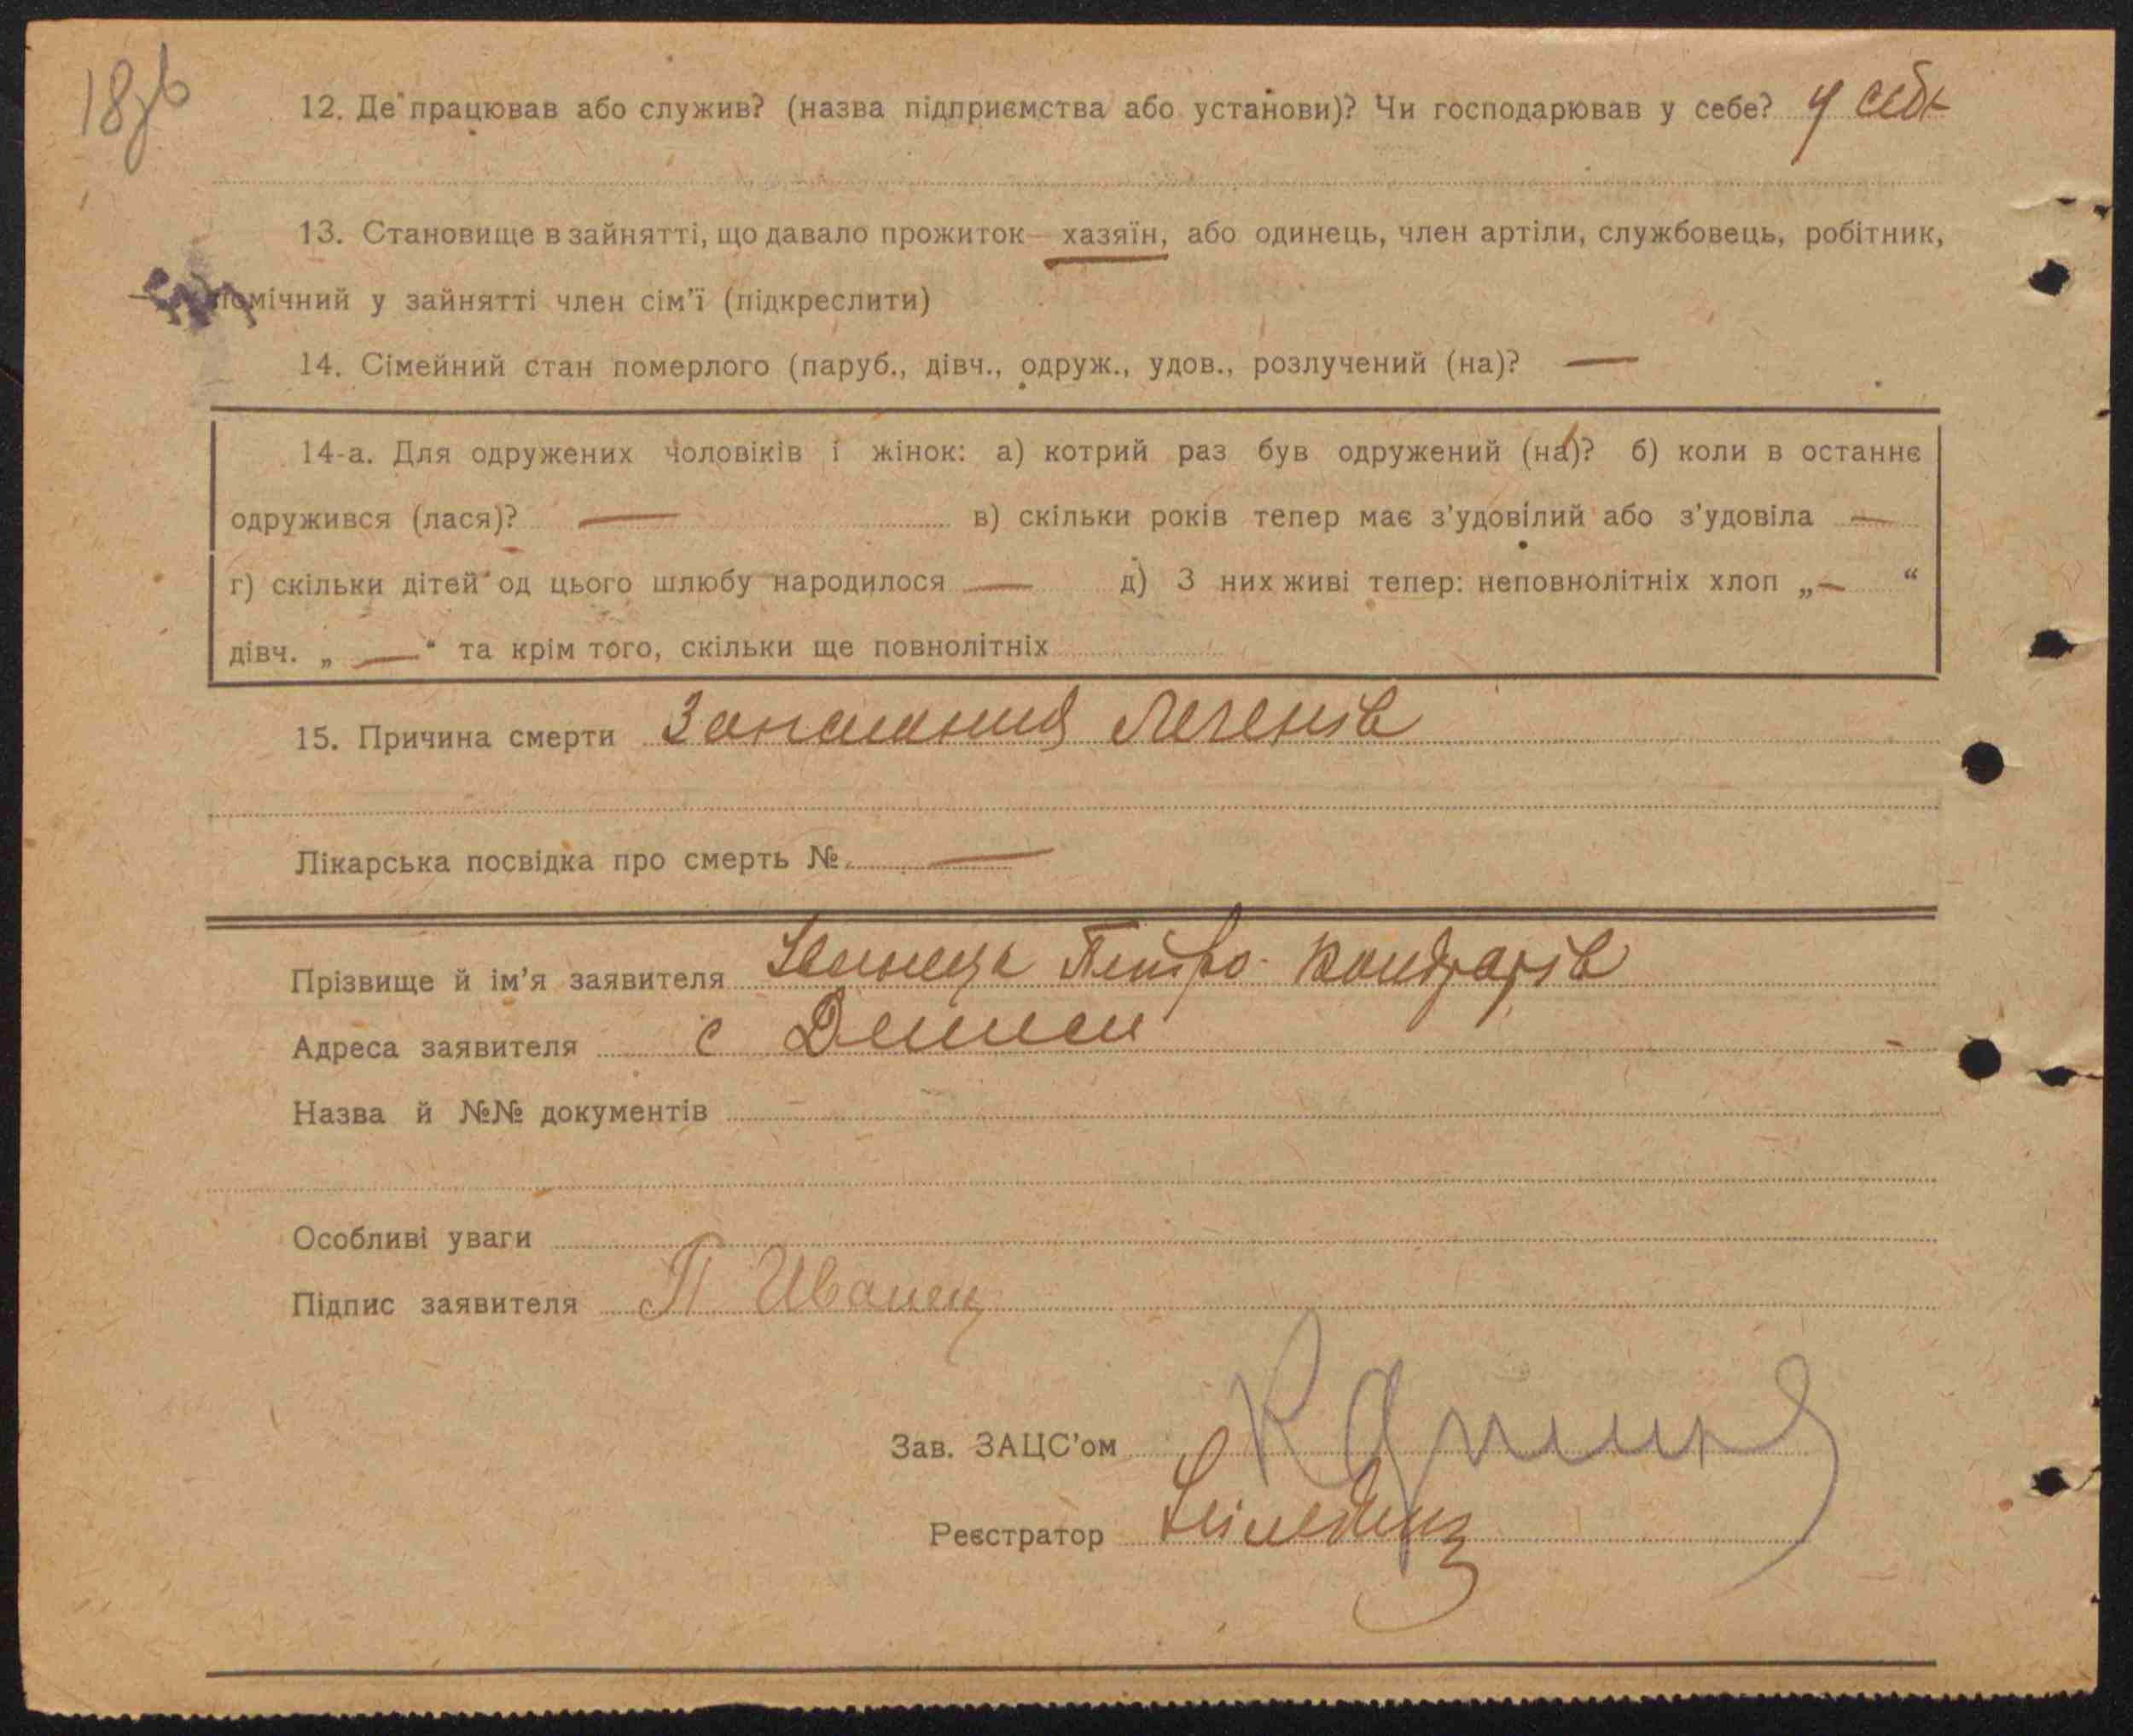 18зв
12. Де працював або служив? (назва підприємства або установи)? Чи господарював у себе? у себе
13. Становище в зайнятті, що давало прожиток — хазяїн, або одинець, член артіли, службовець, робітник,
помічний у зайнятті член сім’ї (підкреслити)
14. Сімейний стан померлого (паруб., дівч., одруж., удов., розлучений (на)? —
14-а. Для одружених чоловіків і жінок: а) котрий раз був одружений (на)? б) коли в останнє
одружився (лася)? — в) скільки років тепер має з’удовілий або з’удовіла —
г) скільки дітей од цього шлюбу народилося — д) З них живі тепер: неповнолітніх хлоп „ — “
дівч. „ — “ та крім того, скільки ще повнолітніх
15. Причина смерти Запалання легенів
Лікарська посвідка про смерть № —
Прізвище й ім’я заявителя Іванець Петро Кондратів
Адреса заявителя с
Назва й №№ документів
Особливі уваги
Підпис заявителя П Иванец
Зав. ЗАЦС’ом
Реєстратор